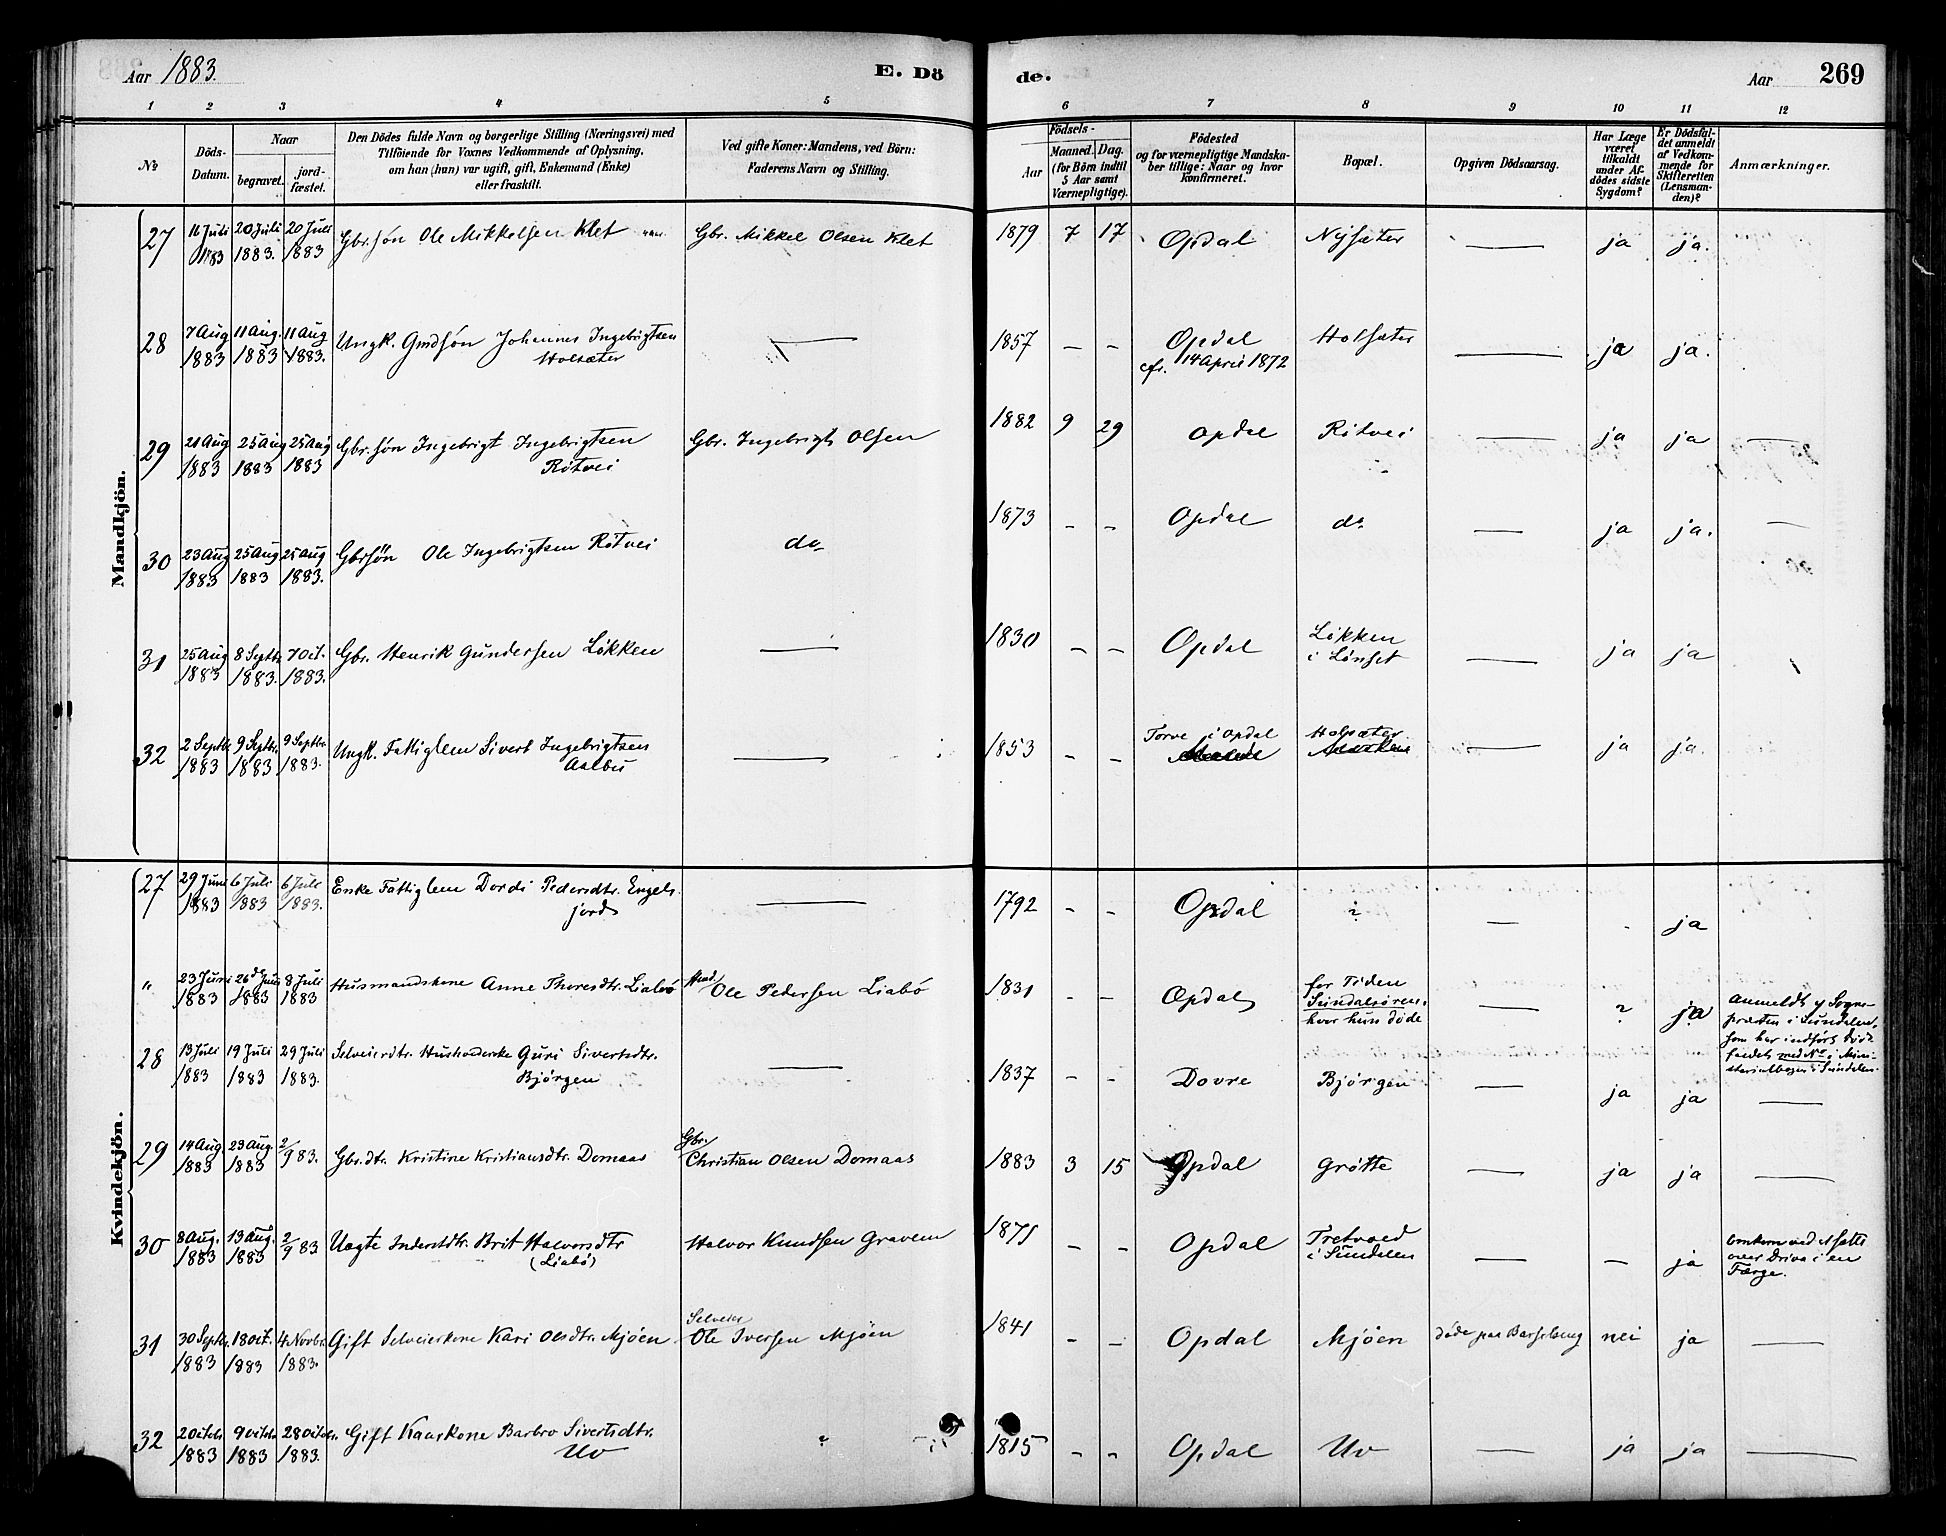 Aar 1883.
E. Dö
de.
Aar
269
1 2 3 4 5 6 7 8 9 10 11 12
No
Döds-Datum.
Naar
begravet.
jord-fæstet.
Den Dödes fulde Navn og borgerlige Stilling (Næringsvei) med
Tilföiende for Voxnes Vedkommende af Oplysning,
om han (hun) var ugift, gift, Enkemand (Enke)
eller fraskilt.
Ved gifte Koner: Mandens, ved Börn:
Faderens Navn og Stilling.
Födsels-
Aar
Maaned. Dag.
(for Börn indtil
5 Aar samt
Værnepligtige).
Födested
og for værnepligtige Mandska-
ber tillige: Naar og hvor
konfirmeret.
Bopæl.
Opgiven Dödsaarsag.
Har Læge
været
tilkaldt
under Af-
dödes sidste
Sygdom?
Er Dödsfal-
det anmeldt
af Vedkom-
mende for
Skifteretten
(Lensman-
den)?
Anmærkninger.
Mandkjön.
27 16 Juli 1883 20 Juli 1883. 20 Juli 1883 Gbr.søn Ole Mikkelsen Klet Gbr. Mikkel Olsen Klet 1879 7 17 Opdal Nysæter — ja ja.
28 7 Aug 1883 11 Aug. 1883 11 Aug 1883. Ungk. Gmdsøn Johannes Ingebrigtsen
Holsæter — 1857 - - Opdal Holsæter — ja ja.
cfr. 14 April 1872
29 21 Aug 1883 25 Aug 1883 25 Aug 1883 Gbr.søn Ingebrigt Ingebrigtsen
Rötvei Gbr. Ingebrigt Olsen 1882 9 29 Opdal Rötvei — ja ja —
30 23 Aug 1883 25 Aug 1883 25 Aug 1883. Gbrsøn Ole Ingebrigtsen Rötvei do 1873 - - Opdal do — ja ja. —
31 25 Aug 1883 8 Septb. 1883. 7 Oct. 1883. Gbr. Henrik Gundersen Løkken — 1830 - - Opdal Løkken
i Lønset — ja ja
32 2 Septb. 1883 9 Septbr. 1883 9 Septbr. 1883. Ungk. Fattiglem Sivert Ingebrigtsen
Aalbu — 1853 - - Torve i Opdal Holsæter — ja ja.
Kvindekjön.
27 29 Juni 1883 6 Juli 1883 6 Juli 1883. Enke Fattiglem Dordi Pedersdtr. Engels-
jord — 1792 - - Opdal ? — ja
" 23 Juni 1883 26de Juni 1883 8 Juli 1883 Husmandskone Anne Thoresdtr. Liabø Husmd Ole Pedersen Liabø 1831 - - Opdal for Tiden
Sundalsøren,
hvor hun døde — ? ja Anmeldt af Sogne-
præsten i Sundalen,
som har indført Døds-
faldet med No i Mini-
sterialbogen i Sundalen.
28 13 Juli 1883 19 Juli 1883 29 Juli 1883. Selveierdtr. Husholderske Guri Sivertsdtr.
Bjørgen — 1837 - - Dovre Bjørgen — ja ja —
29 14 Aug. 1883 23 Aug. 1883 2/9 83. Gbr.dtr. Kristine Kristiansdtr. Domaas Gbr. Christian Olsen Domaas 1883 3 15 Opdal Grøtte — ja ja —
30 8 Aug. 1883 13 Aug. 1883 2/9 83 Uægte Inderstdtr. Brit Halvorsdtr
(Liabø) Halvor Knudsen Gravem 1871 - - Opdal Tretvoed
i Sundalen — — ja Omkom ved at sætte
over Driva i en
Færge.
31 30 Septbr. 1883 18 Oct. 1883 4 Novbr. 1883. Gift Selveierkone Kari Olsdtr. Mjøen. Selveier Ole Iversen Mjøen 1841 - - Opdal Mjøen døde paa Barselseng nei ja —
32 2 Octob. 1883 9 Octob. 1883 28 Octobr. 1883. Gift Kaarkone Barbro Sivertsdtr.
Uv ? 1815 - - Opdal Uv — ja ja —